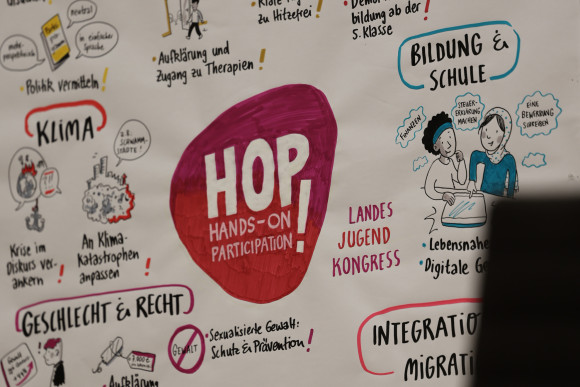 neutral
in einfacher
Sprache
Politik vermitteln!
Aufklärung und
Zugang zu Therapien!
zu Hitzefrei!
bildung ab der
5. Klasse
BILDUNG &
SCHULE
KLIMA
z.B.
SCHWAMM-
STÄDTE?
FINANZEN
STEUER-
ERKLÄRUNG
MACHEN
EINE
BEWERBUNG
SCHREIBEN
HOP!
HANDS-ON
PARTICIPATION
LANDES
JUGEND
KONGRESS
Krise im
Diskurs ver-
ankern!
An Klima-
katastrophen
anpassen!
• Lebensnahe
• Digitale
GESCHLECHT & RECHT
GEWALT
• Sexualisierte Gewalt:
Schutz & Prävention!
Aufklärung
INTEGRATIO
MIGRATI